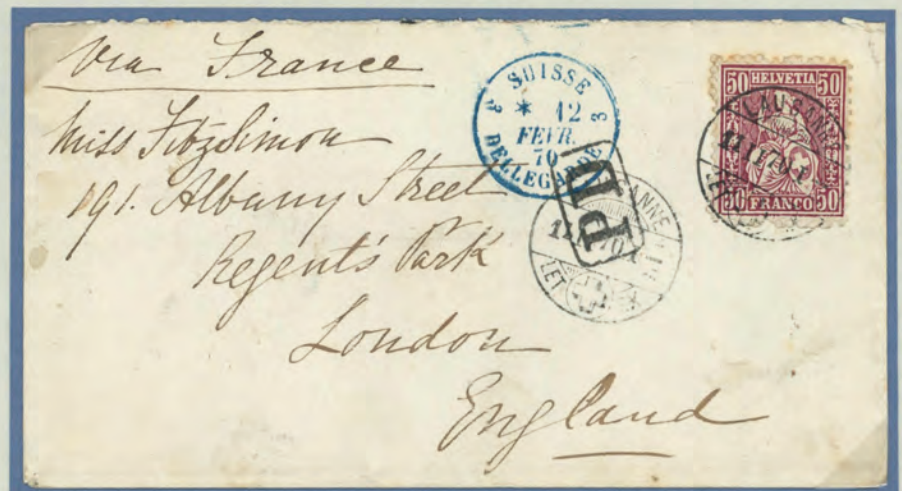 Via France
Miss FitzSimon
191. Albany Street
Regent's Park
London
England
SUISSE
3 * 12 3
FEVR.
70
BELLEGARDE
PD
50 HELVETIA 50
50 FRANCO 50
LAUSANNE